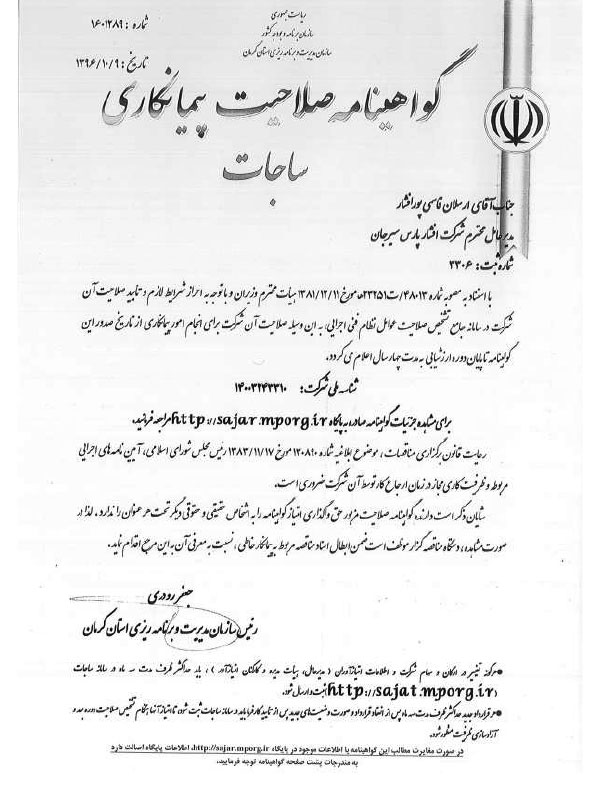 ریاست جمهوری
سازمان برنامه و بودجه کشور
سازمان مدیریت و برنامه ریزی استان کرمان
شماره : ۱۶۰۱۲۸۹
تاریخ : ۱۳۹۶/۱۰/۹
گواهینامه صلاحیت پیمانکاری
ساجات
جناب آقای ارسلان قاسمی پور افشار
مدیرعامل محترم شرکت افشار پارس سیرجان
شماره ثبت: ۲۳۰۶
با استناد به مصوبه شماره ۴۸۰۱۳/ت۲۳۲۵۱هـ مورخ ۱۳۸۱/۱۲/۱۱ هیات محترم وزیران و با توجه به احراز شرایط لازم و تایید صلاحیت آن
شرکت در سامانه جامع تشخیص صلاحیت عوامل نظام فنی اجرایی، به این وسیله صلاحیت آن شرکت برای انجام امور پیمانکاری از تاریخ صدور این
گواهینامه تا پایان دوره ارزشیابی به مدت چهار سال اعلام می گردد.
شناسه ملی شرکت: ۱۴۰۰۳۲۴۳۳۱۰
برای مشاهده جزئیات گواهینامه صادره به پایگاه http://sajar.mporg.ir مراجعه فرمایید.
رعایت قانون برگزاری مناقصات، موضوع ابلاغیه شماره ۱۳۰۸۹۰ مورخ ۱۳۸۳/۱۱/۱۷ رئیس مجلس شورای اسلامی، آیین نامه های اجرایی
مربوط و ظرفیت کاری مجاز در زمان ارجاع کار توسط آن شرکت ضروری است.
شایان ذکر است دارنده گواهینامه صلاحیت مزبور حق واگذاری امتیاز گواهینامه را به اشخاص حقیقی و حقوقی دیگر تحت هر عنوان را ندارد، لذا در
صورت مشاهده، دستگاه مناقصه گزار موظف است ضمن ابطال اسناد مناقصه مربوط به پیمانکار خاطی، نسبت به معرفی آن به این مرجع اقدام نماید.
جعفر رودری
رئیس سازمان مدیریت و برنامه ریزی استان کرمان
●هرگونه تغییر در ارکان و سهام شرکت و اطلاعات امتیازآوران (مدیرعامل، هیات مدیره و کارکنان امتیازآور)، باید حداکثر ظرف مدت سه ماه در سامانه ساجات
(http://sajat.mporg.ir) ثبت و ارسال شود.
●هر قرارداد جدید حداکثر ظرف مدت سه ماه پس از انعقاد قرارداد و صورت وضعیت های جدید پس از تایید کارفرما باید در سامانه ساجات ثبت شود، تا امتیاز آنها هنگام تشخیص صلاحیت دوره بعد و
آزادسازی ظرفیت منظور شود.
در صورت مغایرت مطالب این گواهینامه با اطلاعات موجود در پایگاه http://sajar.mporg.ir، اطلاعات پایگاه اصالت دارد
به مندرجات پشت صفحه گواهینامه توجه فرمایید.